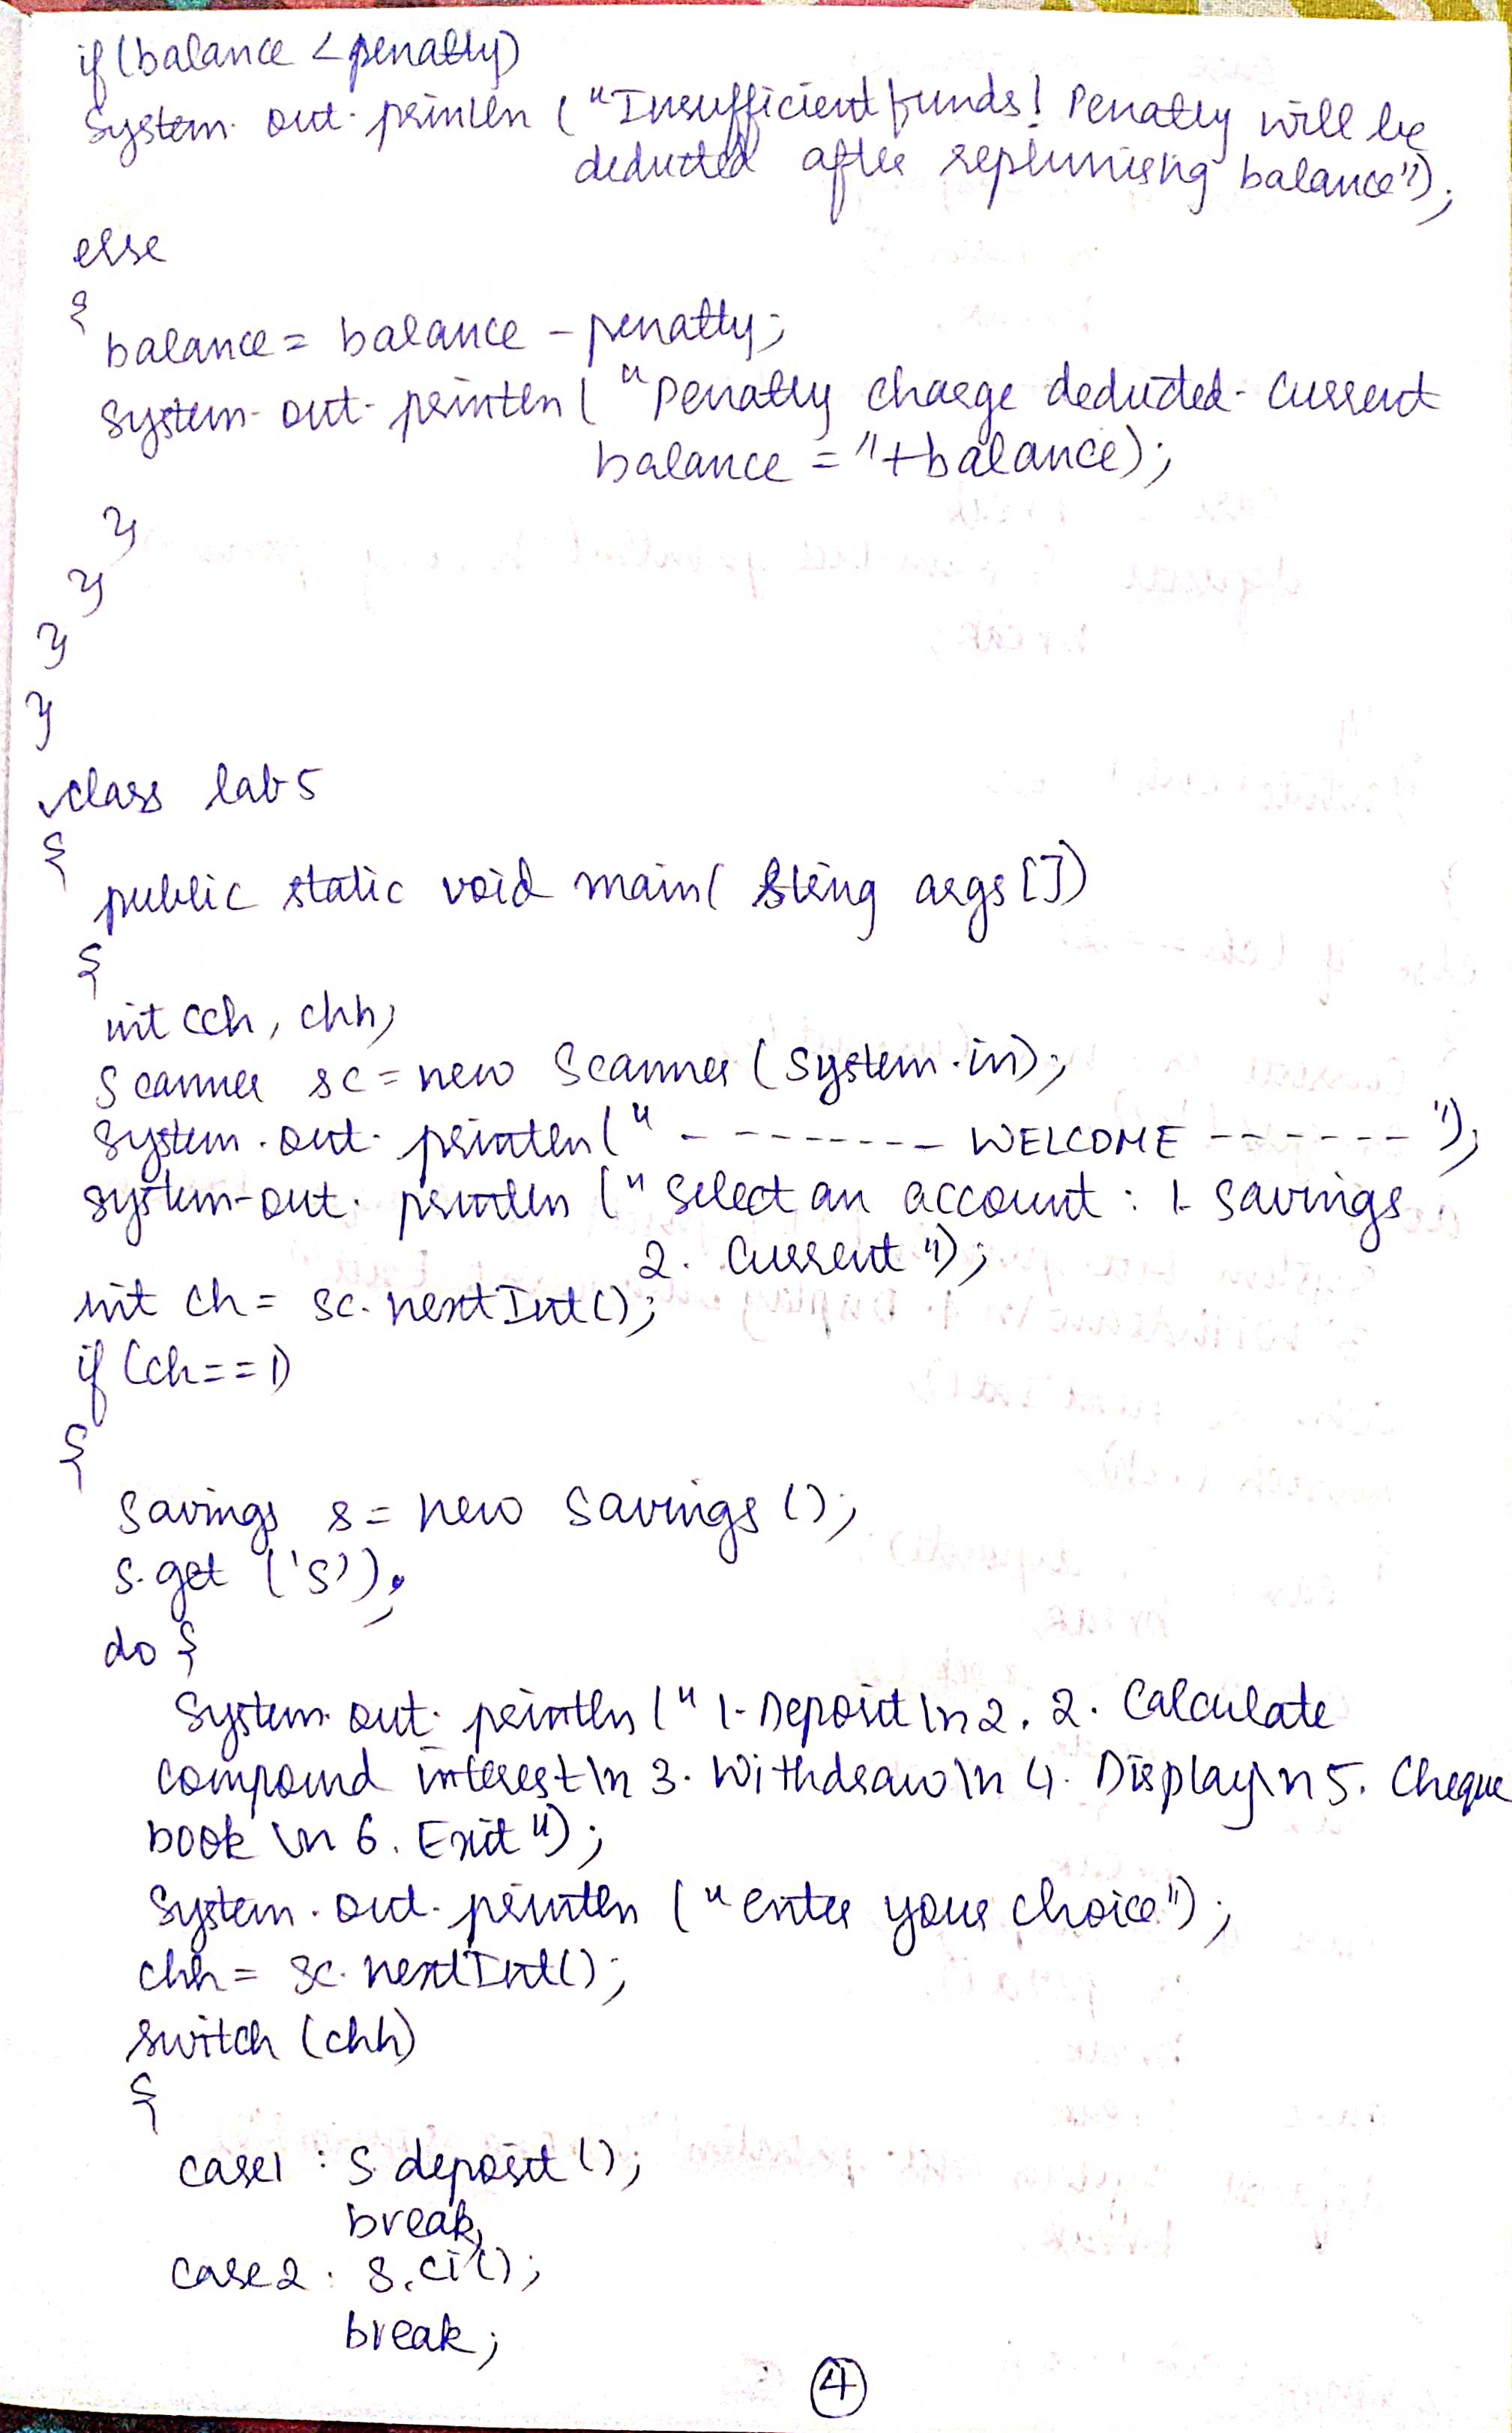 if (balance < penalty)
System. out. println ("Insufficient funds! Penalty will be
deducted after replinising balance");
else
{
balance = balance - penalty;
System. out. println ("Penalty charge deducted. Current
balance = "+balance);
}
}
}
}
class lab5
{
public static void main( String args [])
{
int cch, chh;
Scanner sc = new Scanner (System.in);
System. out. println (" - - - - - - - - WELCOME - - - - - - ");
System. out. println (" Select an account : 1. Savings
2. Current ");
int ch = sc. nextInt();
if (ch==1)
{
Savings s = new Savings ();
s. get ('S');
do {
System. out. println (" 1. Deposit \n 2. 2. Calculate
compound interest \n 3. Withdraw \n 4. Display \n 5. Cheque
book \n 6. Exit ");
System. out. println ("enter your choice");
chh = sc. nextInt();
switch (chh)
{
case1 : s. deposit ();
break;
case2 : s. ci ();
break;
4